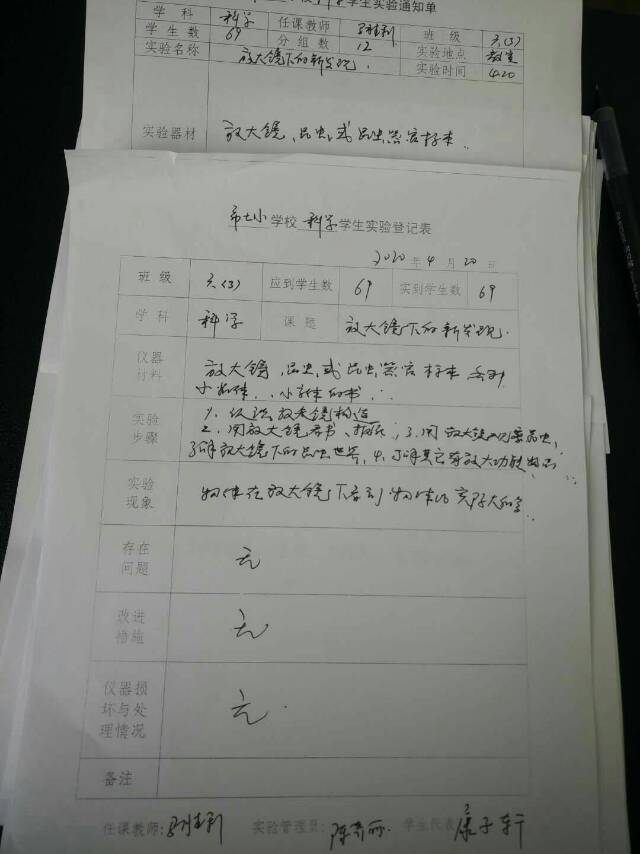 学生实验通知单
学科 科学 任课教师 班级 六(3)
学生数 69 分组数 12 实验地点 教室
实验名称 放大镜下的新发现. 实验时间 4.20
实验器材 放大镜、昆虫或昆虫器官标本.
市七小学校 科学学生实验登记表
2020年4月20日
班级 六(3) 应到学生数 69 实到学生数 69
学科 科学 课题 放大镜下的新发现.
仪器 放大镜、昆虫或昆虫器官标本
材料 小字体的书
实验 1、放大镜构造
步骤 2、用放大镜看书、报纸、3、用放大镜观察昆虫,
了解放大镜下的昆虫世界,4、了解其它有放大功能
实验 物体在放大镜下看到物体的
现象
存在 无
问题
改进 无
措施
仪器损
坏与处 无.
理情况
备注
任课教师: 实验管理员: 学生代表: 康子轩